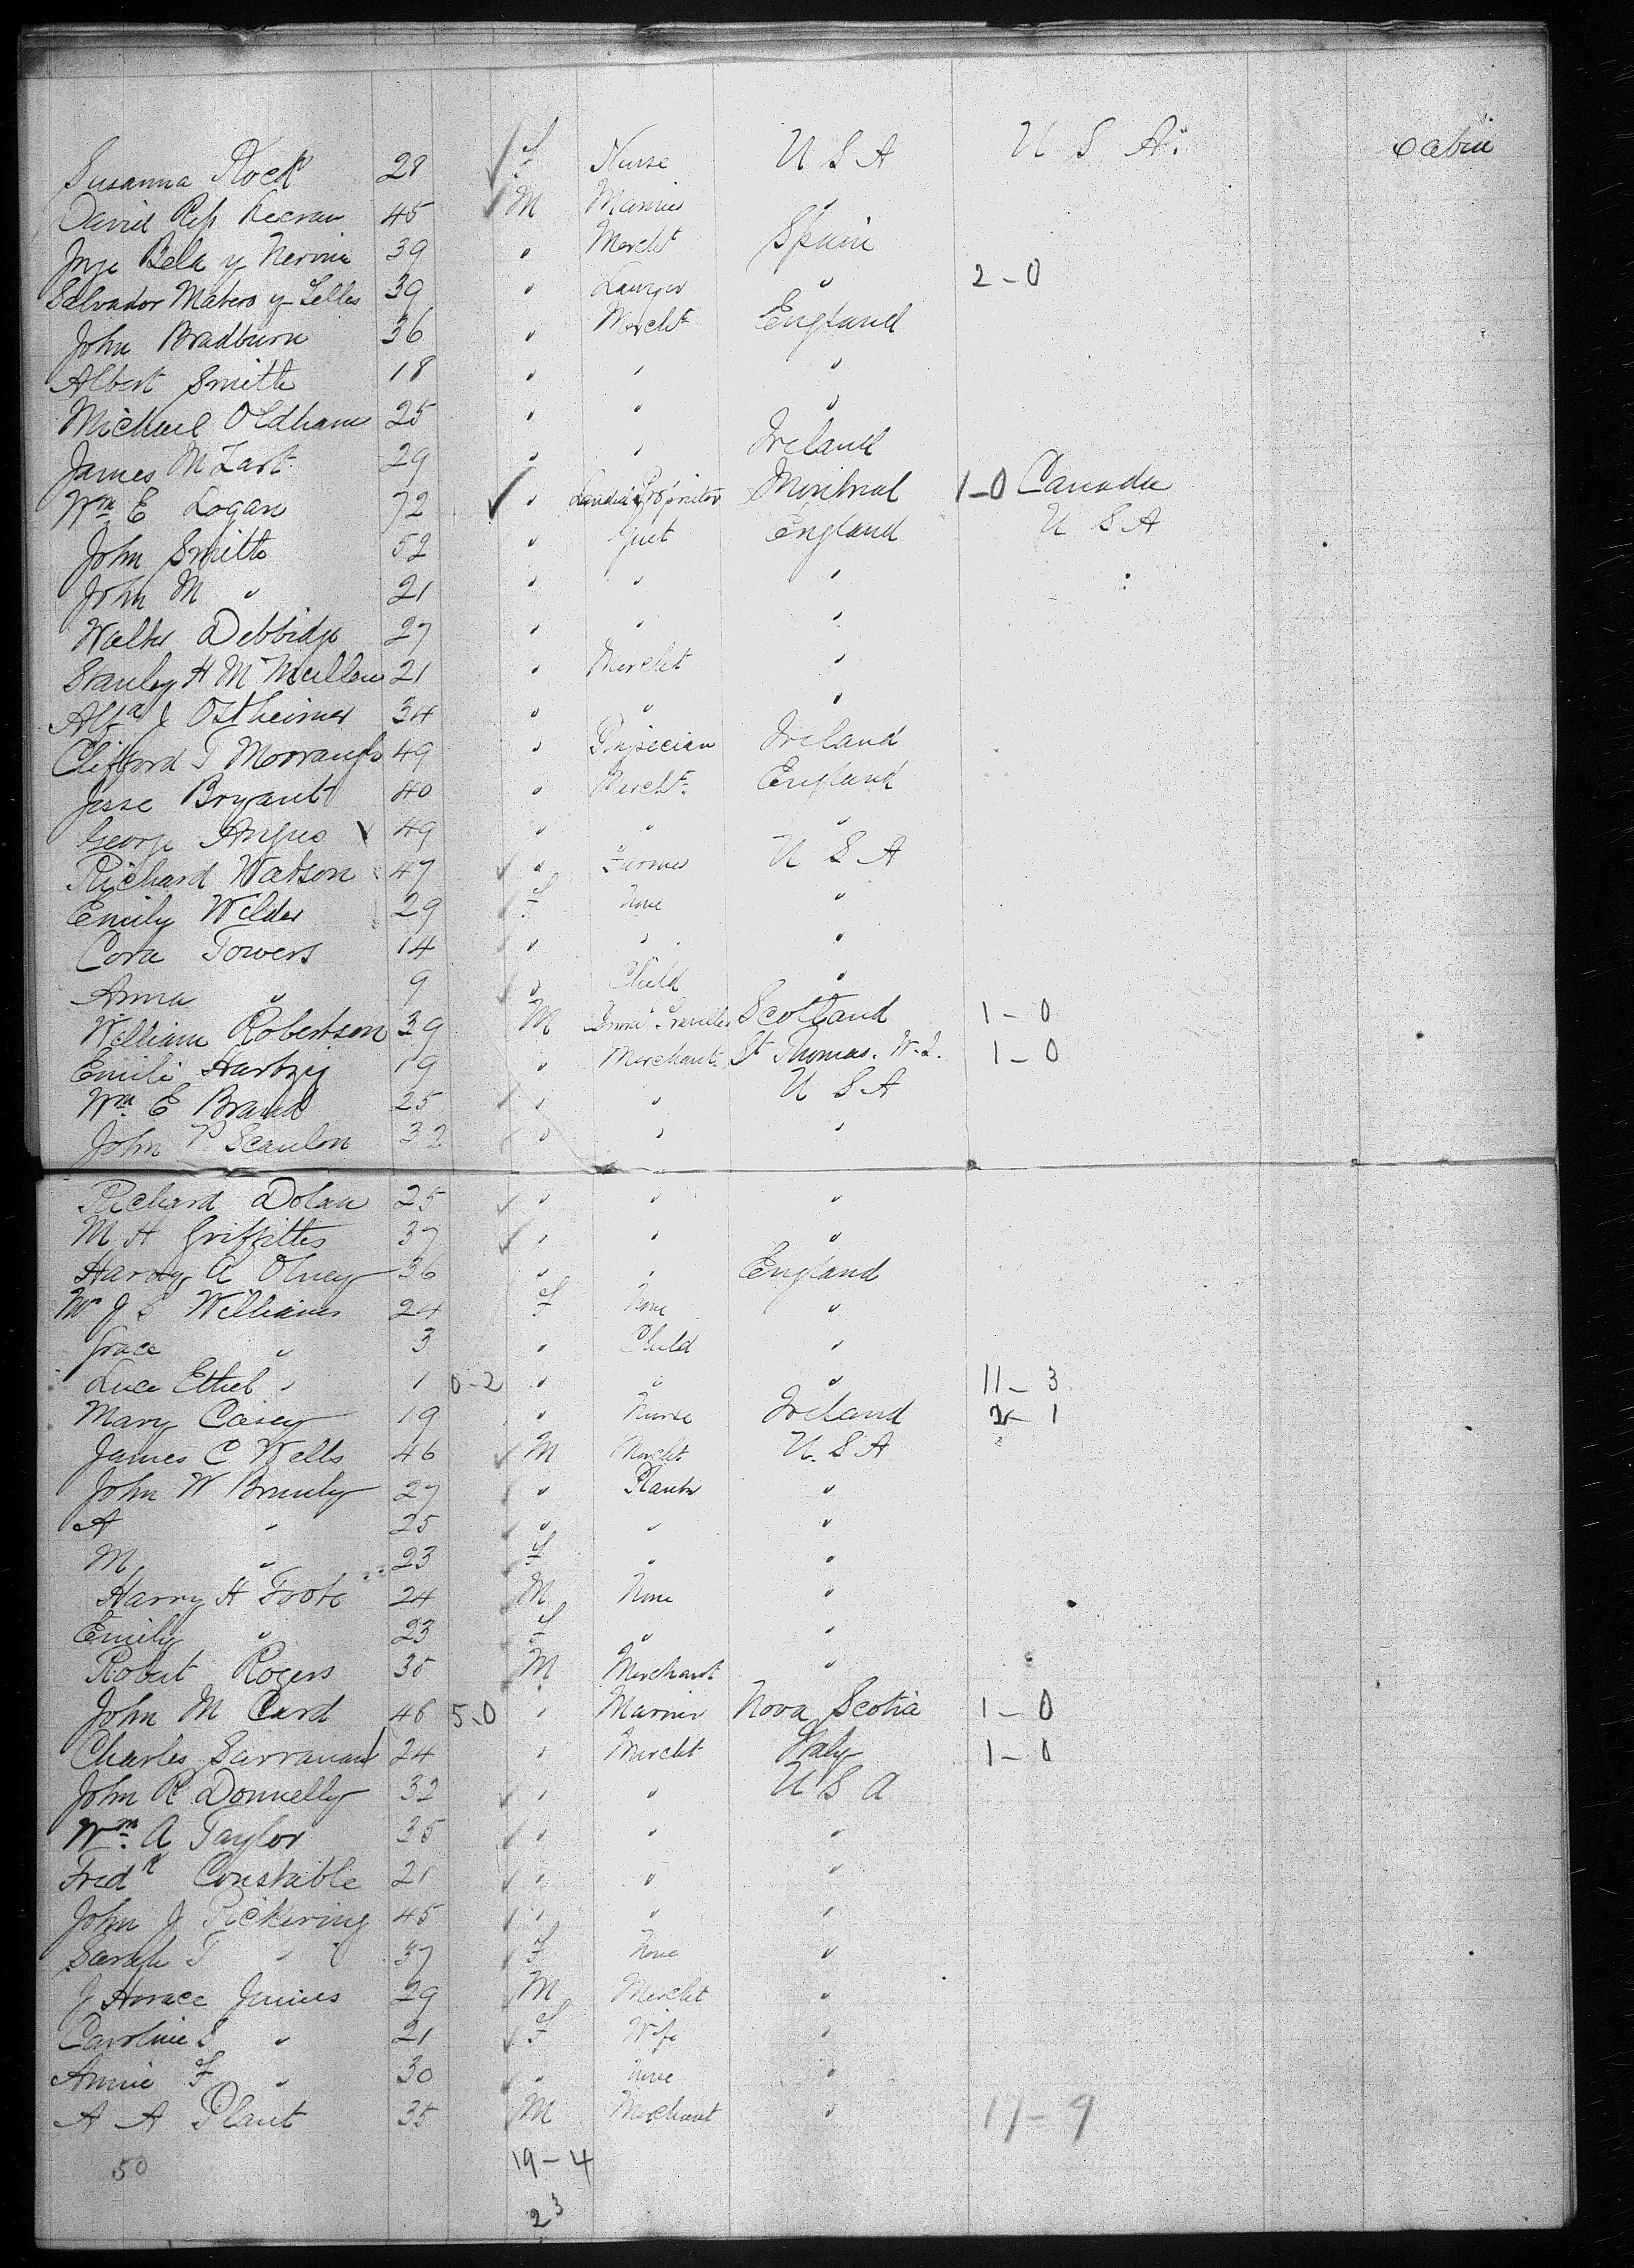 Susanna Plock 28 ✓ F Nurse U S A U S A. Cabin
David Rep 45 ✓ M Marine "
Bela y 39 " Mercht Spain
Salvador Matero y Telles 39 " Lawyer " 2-0
John Bradburn 36 " Mercht England
Albert Smith 18 " " "
Michael Oldham 25 " " "
James 29 " " Ireland
Wm E Logan 72 ✓ " Landed Proprietor Montreal 1-0 Canada
John Smith 52 " Gent England U S A
John M " 21 " " "
Walter Debbidge 27 " " "
Stanley H McMullen 21 " Mercht "
Alfd J Ostheimer 34 " " "
Clifford T 49 " Physician Ireland
Jesse Bryant 40 " Mercht England
George Angus 49 " " "
Richard Watson 47 ✓ " Farmer U S A
Emily Wilder 29 ✓ F None "
Cora Towers 14 ✓ " " "
Anna " 9 ✓ " Child "
William Robertson 39 M Comml Traveller Scotland 1-0
Emile 19 " Merchant St Thomas. W.I. 1-0
Wm E Brand 25 ✓ " " U S A
John P Scanlon 32 ✓ " " "
Richard Dolan 25 ✓ " " "
M H Griffiths 37 ✓ " " "
Harry A Olney 36 " " England
Mrs J S Williams 24 F None "
Grace " 3 " Child "
Luce Ethel " 1 0-2 " " " 11-3
Mary Casey 19 " Nurse Ireland 2-1
James C Wells 46 ✓ M Mercht U.S A
John W 27 ✓ " Planter "
A " 25 ✓ " " "
M " 23 ✓ F " "
Harry H Foote 24 ✓ M None "
Emily " 23 ✓ F " "
Robert Rogers 35 M Merchant "
John M Card 46 5-0 " Marine Nova Scotia 1-0
Charles 24 " Mercht Italy 1-0
John R Donnelly 32 ✓ " " U S A
Wm A Taylor 35 ✓ " " "
Fredk Constable 21 ✓ " " "
John J Pickering 45 ✓ " " "
Sarah T " 37 ✓ F None "
J Horace 29 ✓ M Mercht "
Caroline S " 21 ✓ F Wife "
Annie F " 30 ✓ " None "
A A Plaut 35 M Merchant " 17-9
50 19-4
23